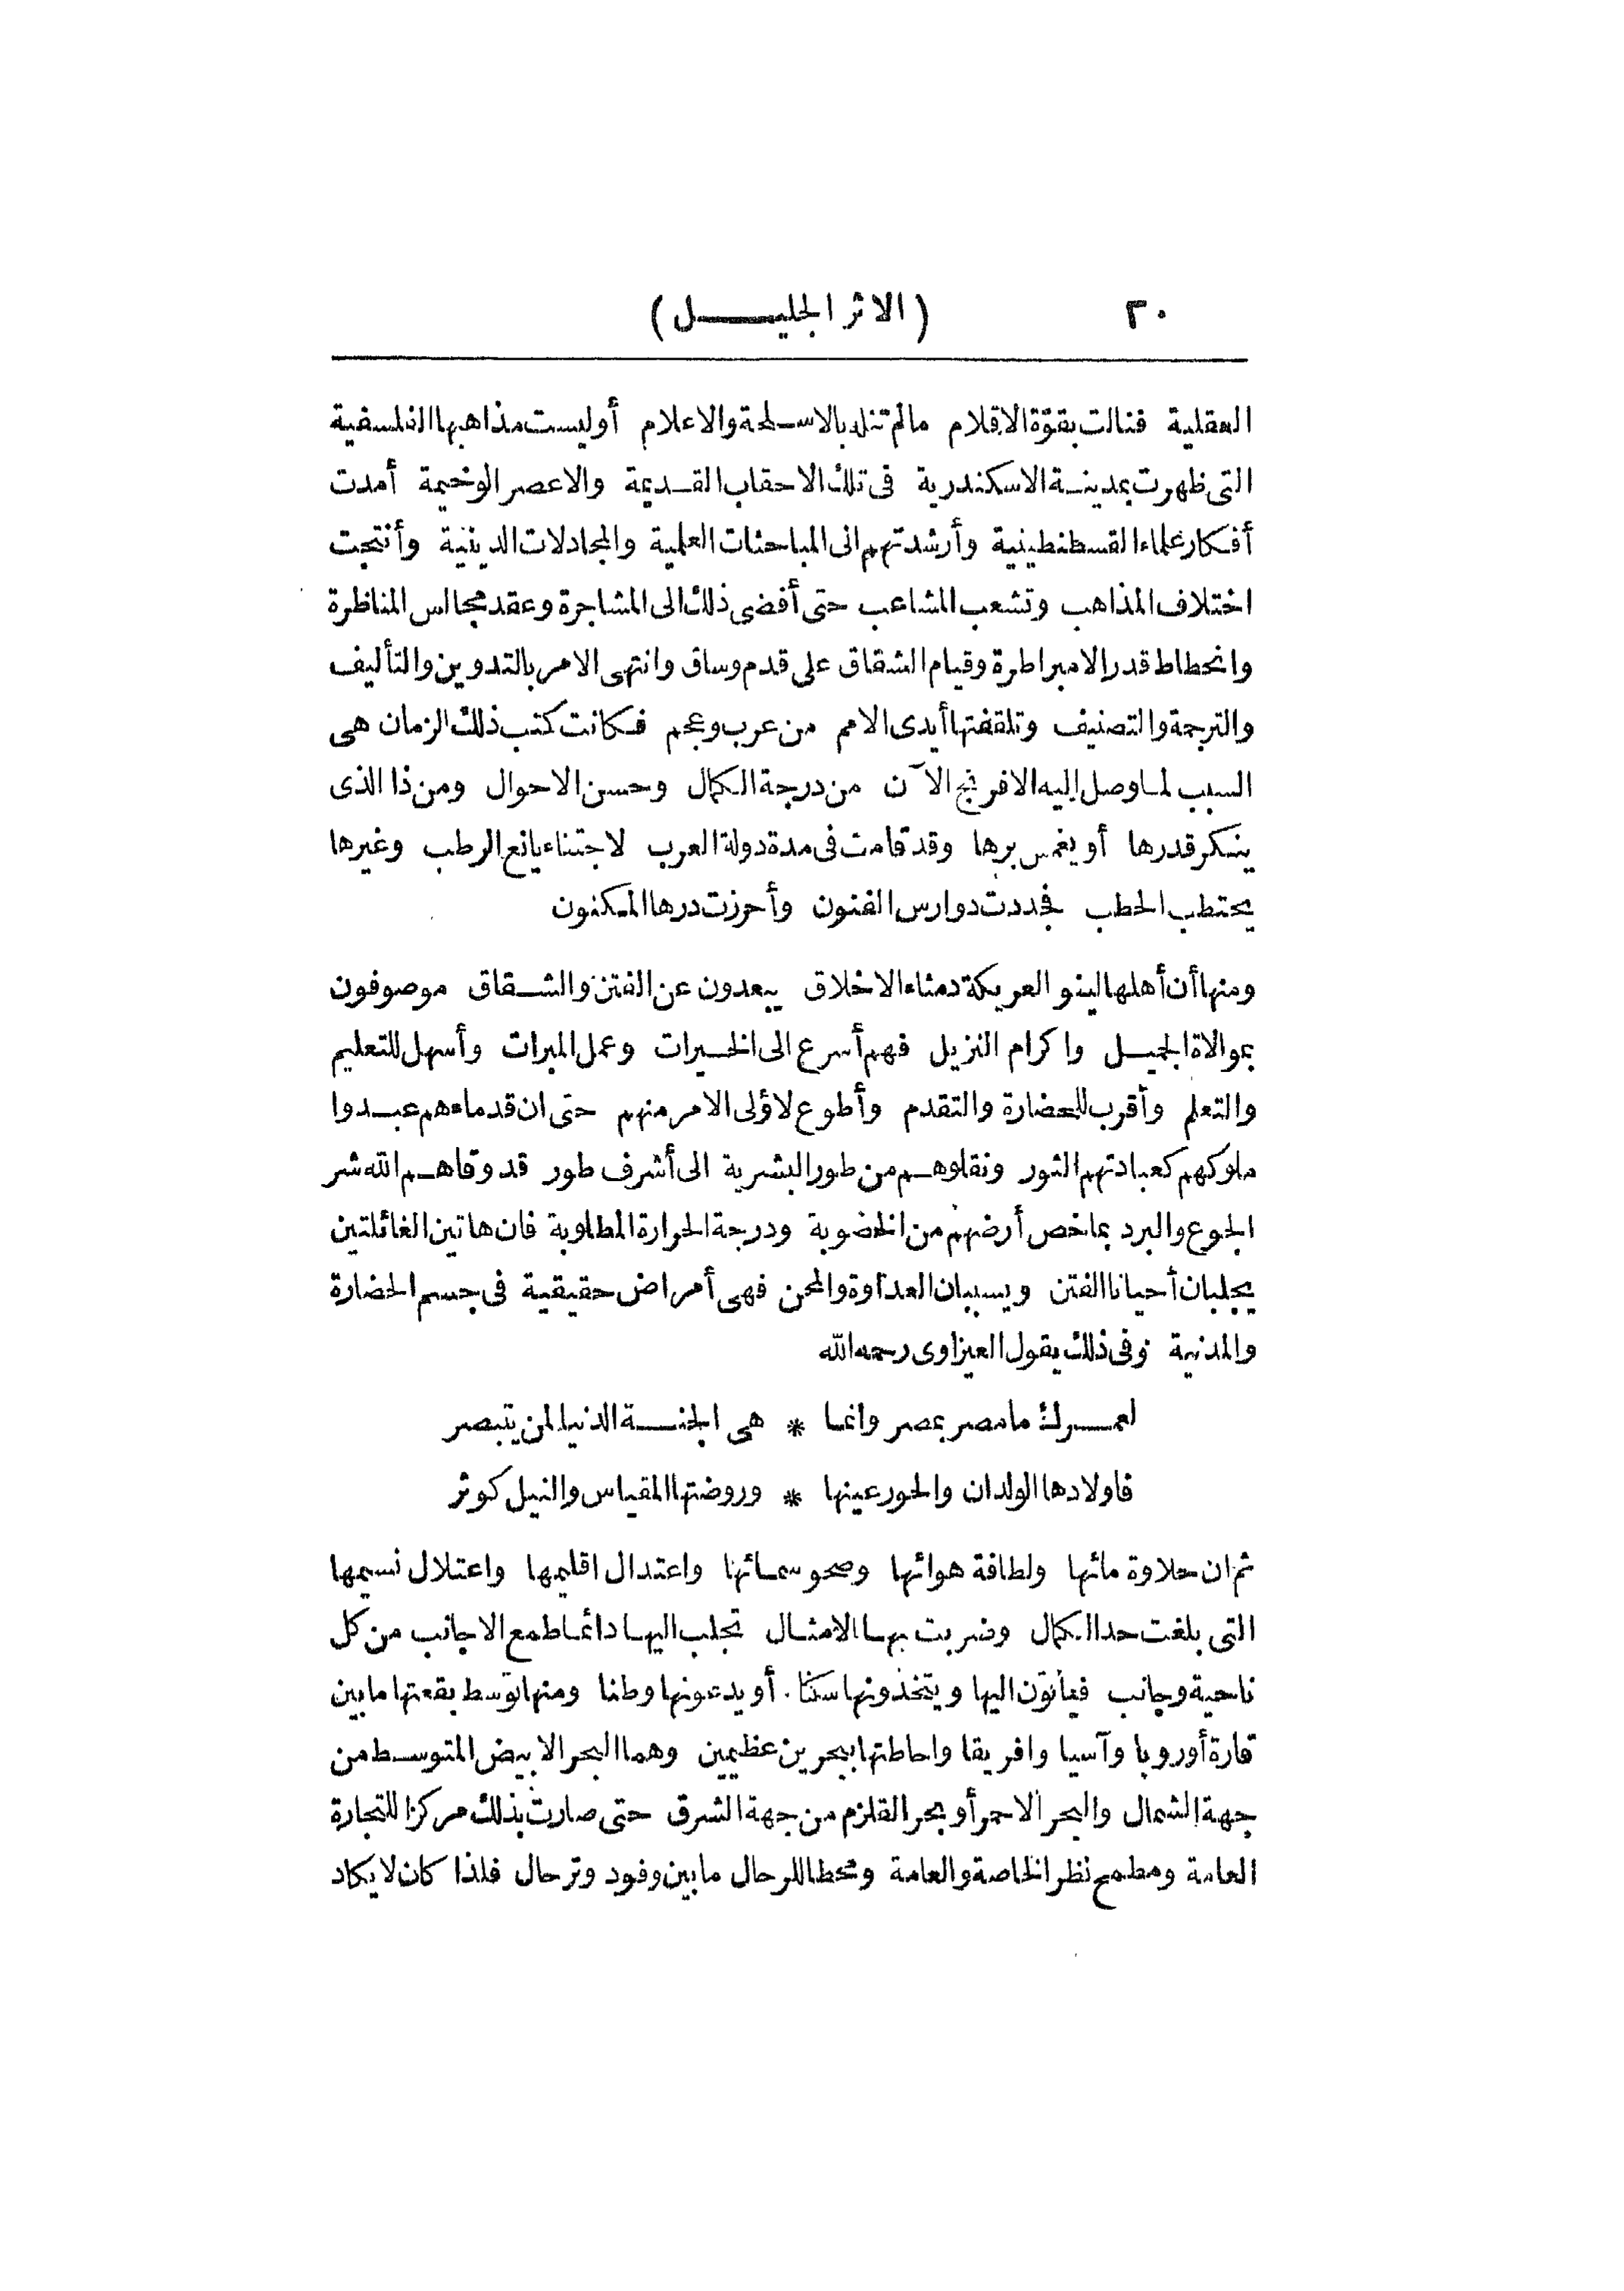 ٢٠ (الاثر الجليل)
العقلية فنالت بقوّة الاقلام مالم تنله بالاسلحة والاعلام أوليست مذاهبها الفلسفية
التى ظهرت بمدينة الاسكندرية فى تلك الاحقاب القديمة والاعصر الوخيمة أمدت
أفكار علماء القسطنطينية وأرشدتهم الى المباحثات العلمية والمجادلات الدينية وأنتجت
اختلاف المذاهب وتشعب المشاعب حتى أفضى ذلك الى المشاجرة وعقد مجالس المناظرة
وانحطاط قدر الامبراطرة وقيام الشقاق على قدم وساق وانتهى الامر بالتدوين والتأليف
والترجمة والتصنيف وتلقفتها أيدى الامم من عرب وعجم فكانت كتب ذلك الزمان هى
السبب لما وصل اليه الافرنج الآن من درجة الكمال وحسن الاحوال ومن ذا الذى
ينكر قدرها أو يغمس برها وقد قامت فى مدة دولة العرب لاجتناء يانع الرطب وغيرها
يحتطب الحطب فجددت دوارس الفنون وأحرزت درها المكنون
ومنها أن أهلها لينو العريكة دمثاء الاخلاق يبعدون عن الفتن والشقاق موصوفون
بموالاة الجميل واكرام النزيل فهم أسرع الى الخيرات وعمل المبرات وأسهل للتعليم
والتعلم وأقرب للحضارة والتقدم وأطوع لاؤلى الامر منهم حتى ان قدماءهم عبدوا
ملوكهم كعبادتهم الثور ونقلوهم من طور البشرية الى أشرف طور قد وقاهم الله شر
الجوع والبرد بما خص أرضهم من الخضوبة ودرجة الحرارة المطلوبة فان هاتين الغائلتين
يجلبان أحيانا الفتن ويسببان العداوة والمحن فهى أمراض حقيقية فى جسم الحضارة
والمدنية وفى ذلك يقول العيزاوى رحمه الله
لعمرك ما مصر بمصر وانما * هى الجنة الدنيا لمن يتبصر
فاولادها الولدان والحور عينها * وروضتها المقياس والنيل كوثر
ثم ان حلاوة مائها ولطافة هوائها وصحو سمائها واعتدال اقليمها واعتلال نسيمها
التى بلغت حد الكمال وضربت بها الامثال تجلب اليها دائما طمع الاجانب من كل
ناحية وجانب فيأتون اليها ويتخذونها سكنا . أو يدعونها وطنا ومنها توسط بقعتها مابين
قارة أوروبا وآسيا وافريقا واحاطتها ببحرين عظيمين وهما البحر الابيض المتوسط من
جهة الشمال والبحر الاحمر أو بحر القلزم من جهة الشرق حتى صارت بذلك مركزا للتجارة
العامة ومطمح نظر الخاصة والعامة ومحطا للرحال مابين وفود وترحال فلذا كان لايكاد